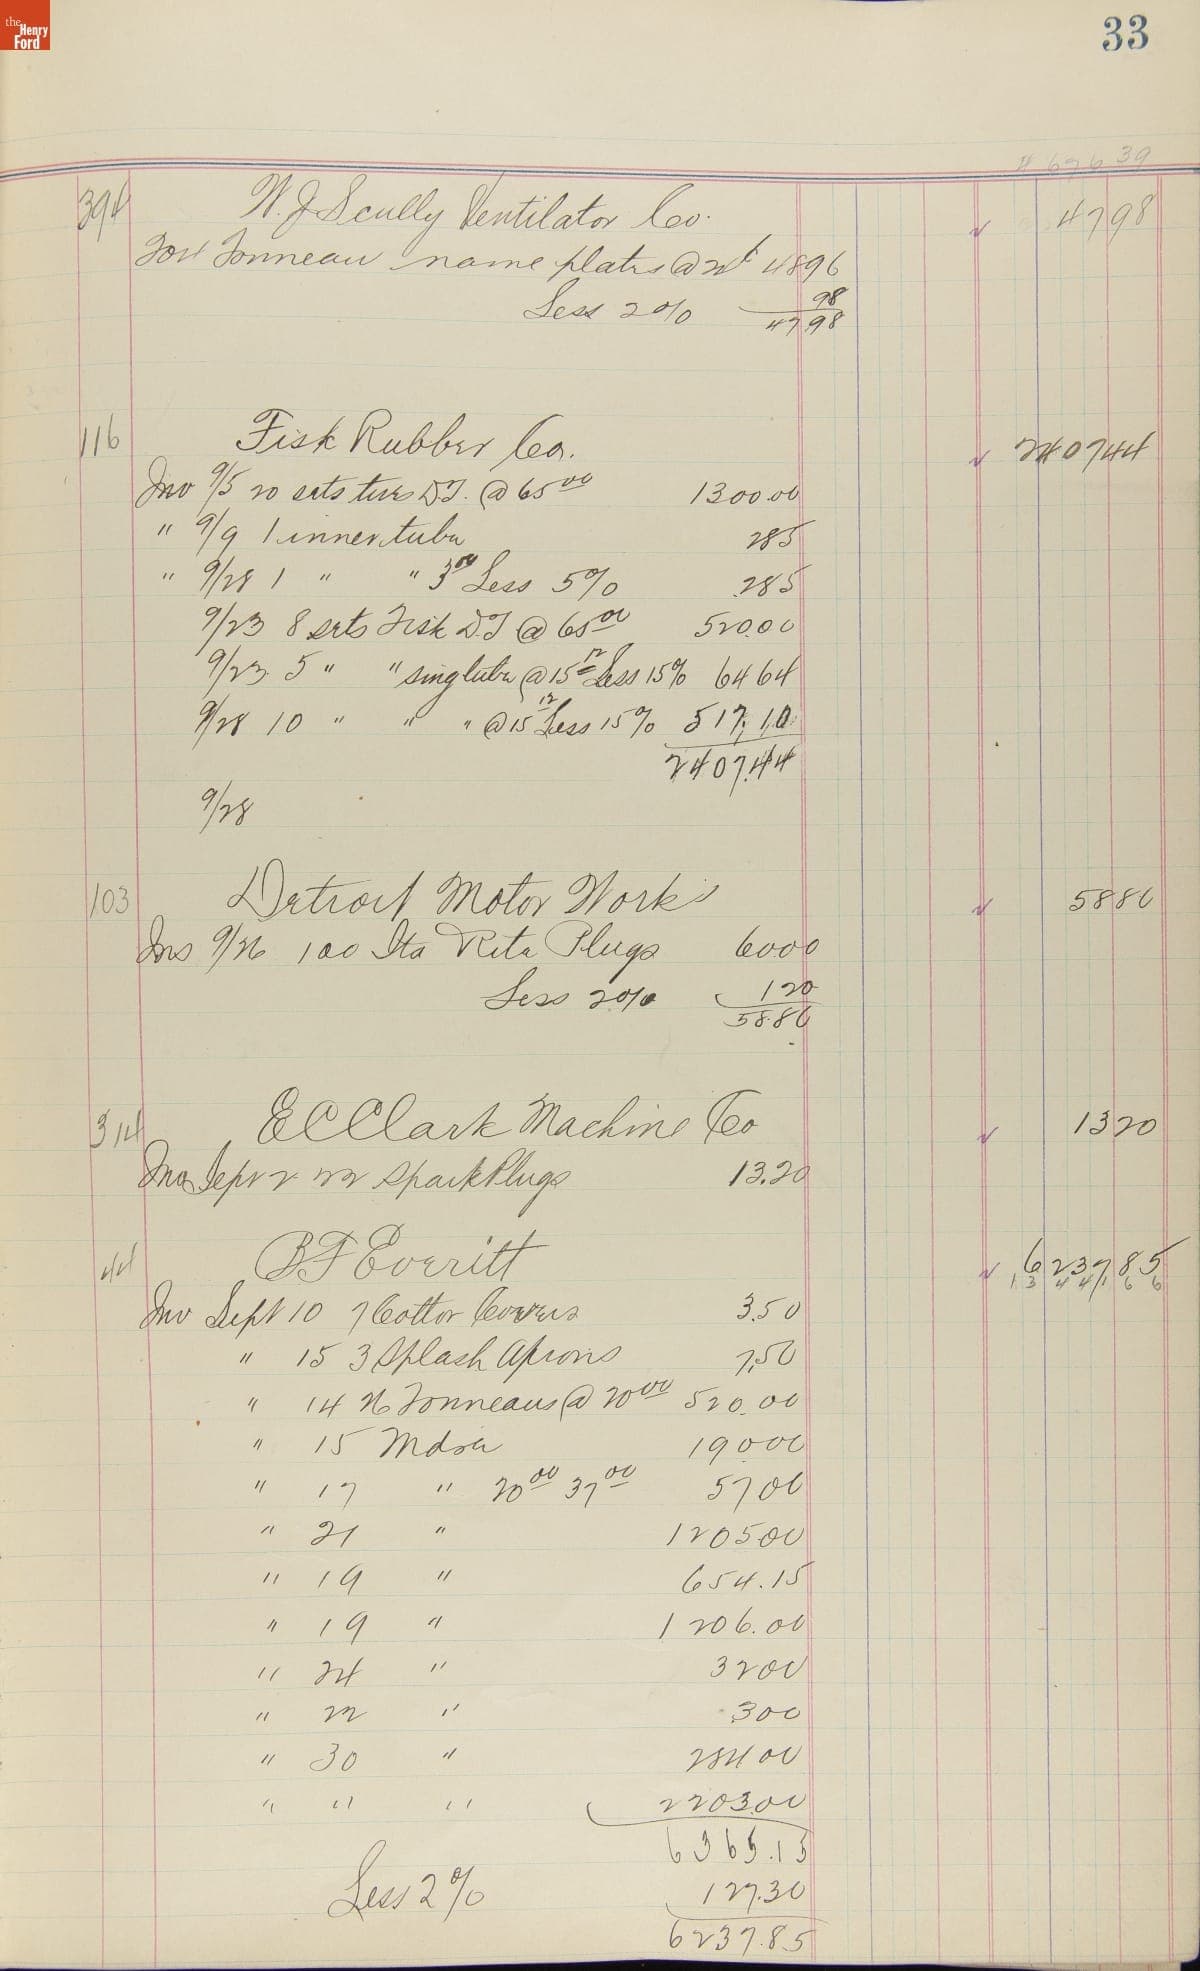 the Henry Ford
33
67639
394 W. J. Scully Ventilator Co. 4798
Tonneau name plates @ 4896
Less 2% 98
4798
116 Fisk Rubber Co. 240744
Inv 9/5 20 sets tires D.T. @ 65 00 1300.00
" 9/9 1 inner tube 285
" 9/28 1 " " 3 00 Less 5% 285
9/23 8 sets Fisk D.T @ 65 00 520.00
9/23 5 " " sing tube @ 15 12 Less 15% 6464
9/28 10 " " " @ 15 12 Less 15% 517.10
2407.44
9/28
103 Detroit Motor Works 5880
Inv 9/26 100 Sta Rite Plugs 6000
Less 2% 120
58.80
314 E C Clark Machine Co 1320
Inv Sept 2 22 Spark Plugs 13.20
44 B F Everitt 6237.85
1 3 4 4 1 6 6
Inv Sept 10 7 Covers 3.50
" 15 3 Splash Aprons 7.50
" 14 26 Tonneaus @ 20 00 520.00
" 15 Mdse 19000
" 17 " 20 00 37 00 5700
" 21 " 120500
" 19 " 654.15
" 19 " 1206.00
" 24 " 3200
" 22 " 300
" 30 " 28400
" " " 220300
6365.15
Less 2% 127.30
6237.85